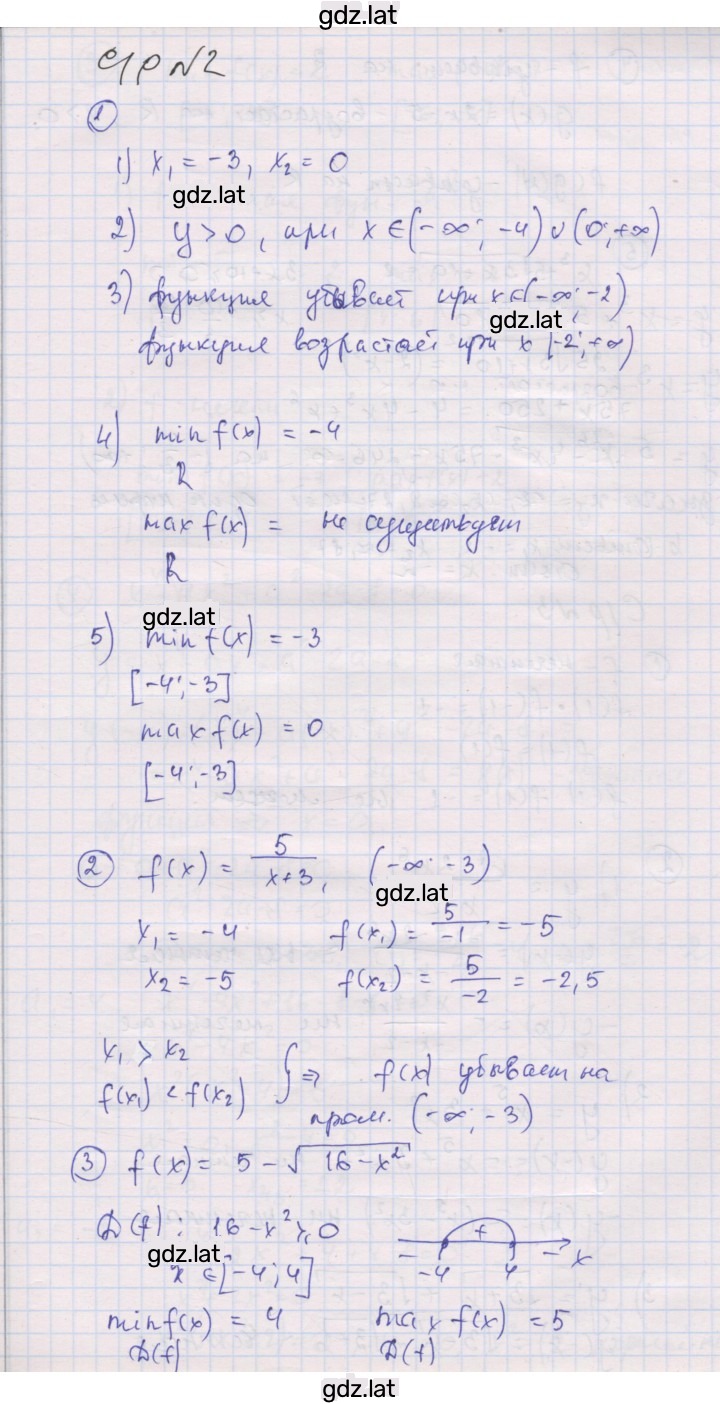 gdz.lat
СР №2
①
1) x₁ = -3, x₂ = 0
gdz.lat
2) y > 0, при x ∈ (-∞; -4) ∪ (0; +∞)
3) функция убывает при x ∈ (-∞; -2)
gdz.lat
функция возрастает при x (-2; +∞)
4) min f(x) = -4
R
max f(x) = не существует
R
gdz.lat
5) min f(x) = -3
[-4; -3]
max f(x) = 0
[-4; -3]
② f(x) = 5/(x+3), (-∞; -3)
gdz.lat
x₁ = -4 f(x₁) = 5/-1 = -5
x₂ = -5 f(x₂) = 5/-2 = -2,5
x₁ > x₂
f(x₁) < f(x₂) } ⇒ f(x) убывает на
пром. (-∞; -3)
③ f(x) = 5 - √(16 - x²)
D(f): 16 - x² ≥ 0 - + - x
gdz.lat
x ∈ [-4; 4] -4 4
min f(x) = 4 max f(x) = 5
D(f) D(f)
gdz.lat